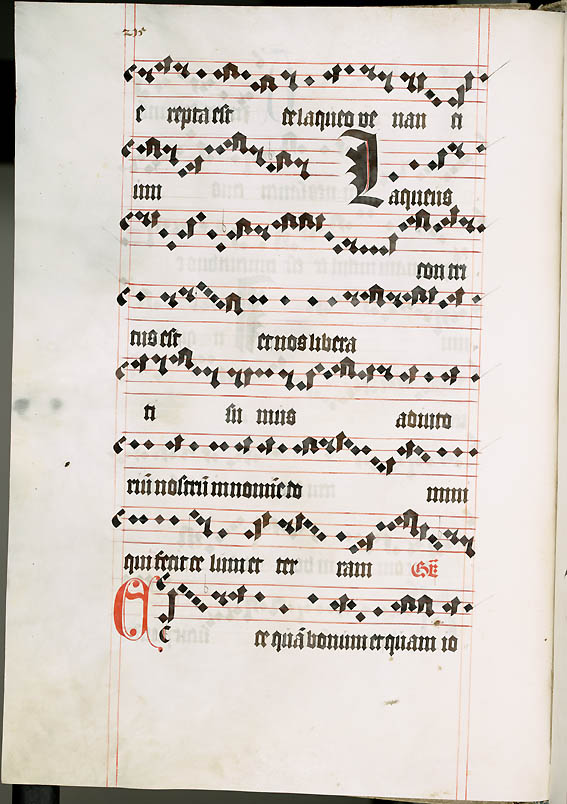 e repta est de laqueo ve nan ti
um Laqueus
con tri
tus est et nos libera
ti su mus adiuto
riū nostrū in nomīe do mini
qui fecit ce lum et ter ram
Ecce quā bonum et quam io